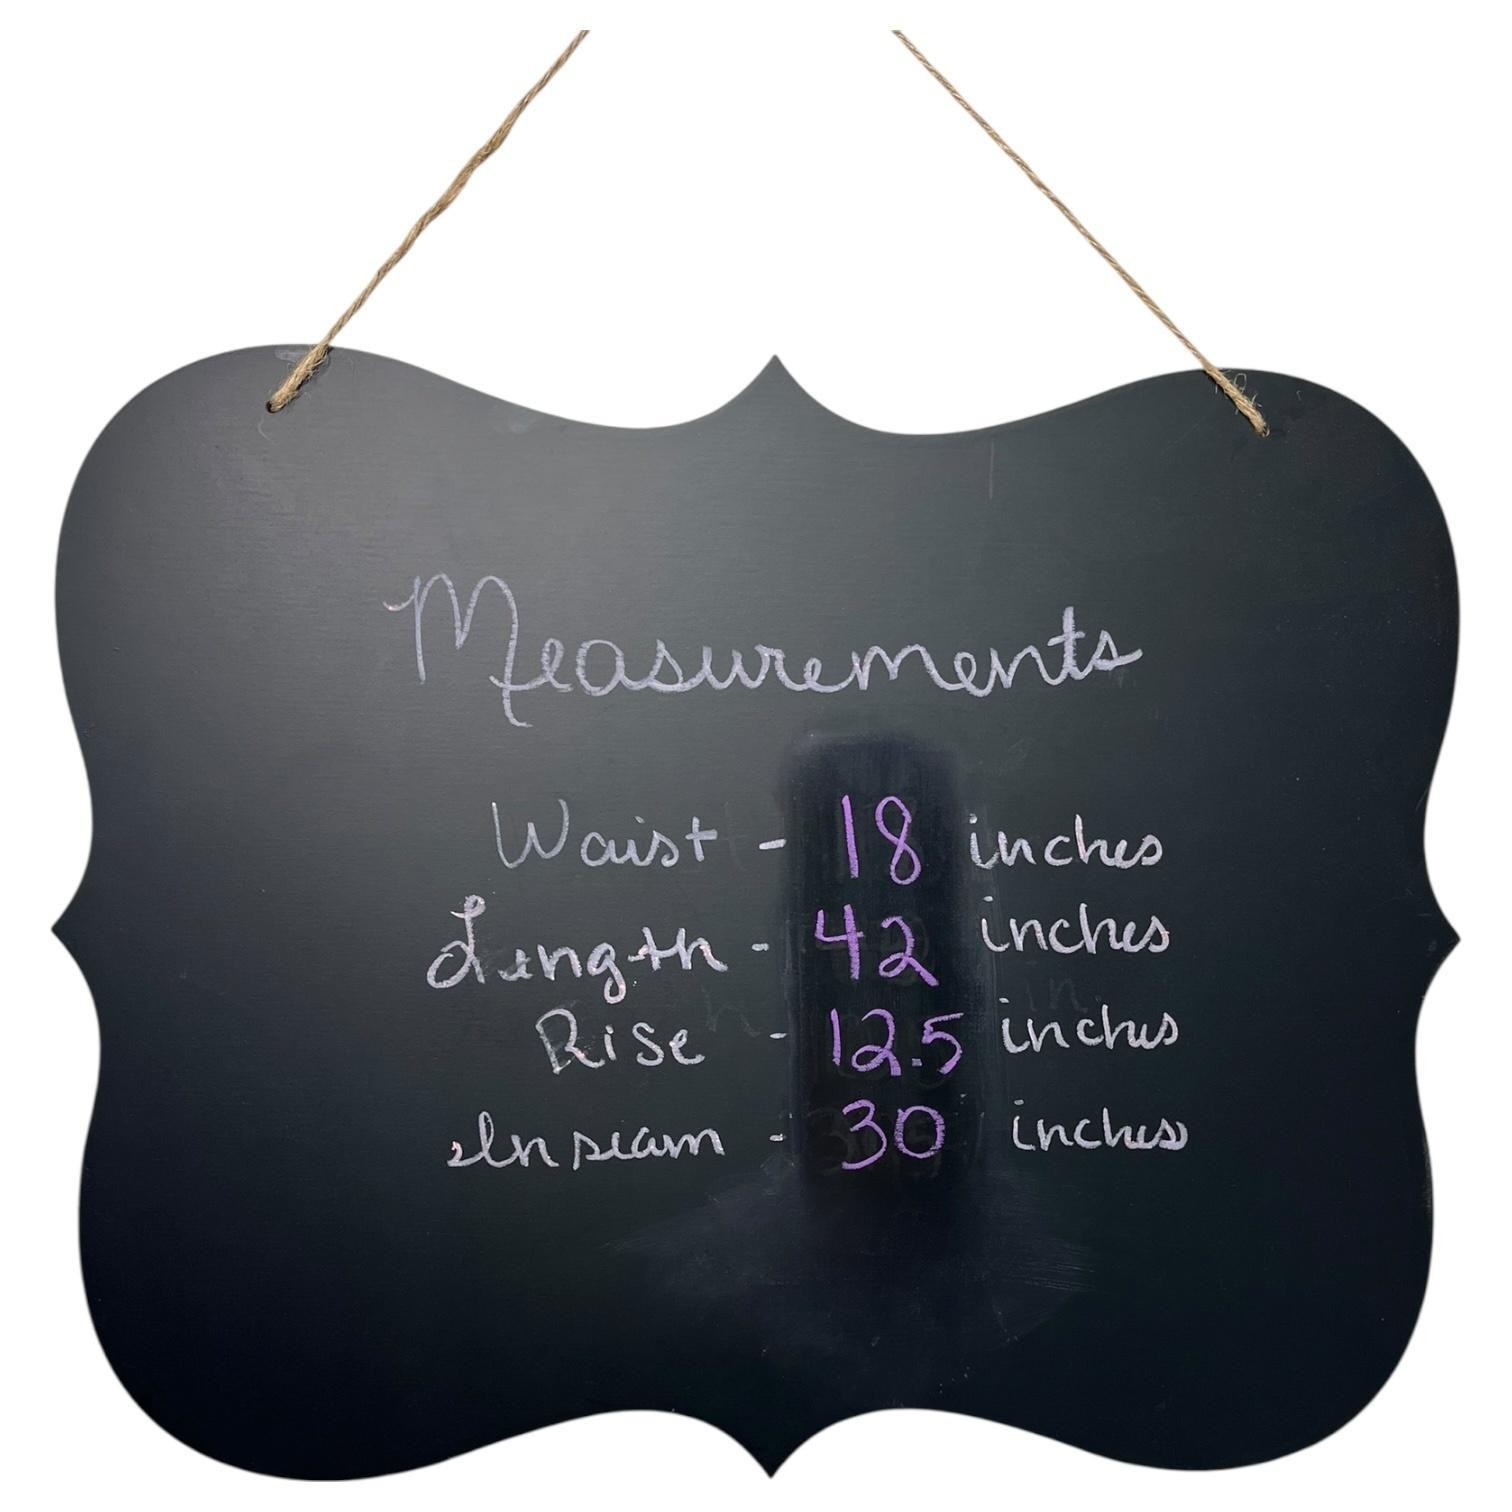 Measurements
Waist - 18 inches
Length - 42 inches
Rise - 12.5 inches
Inseam - 30 inches